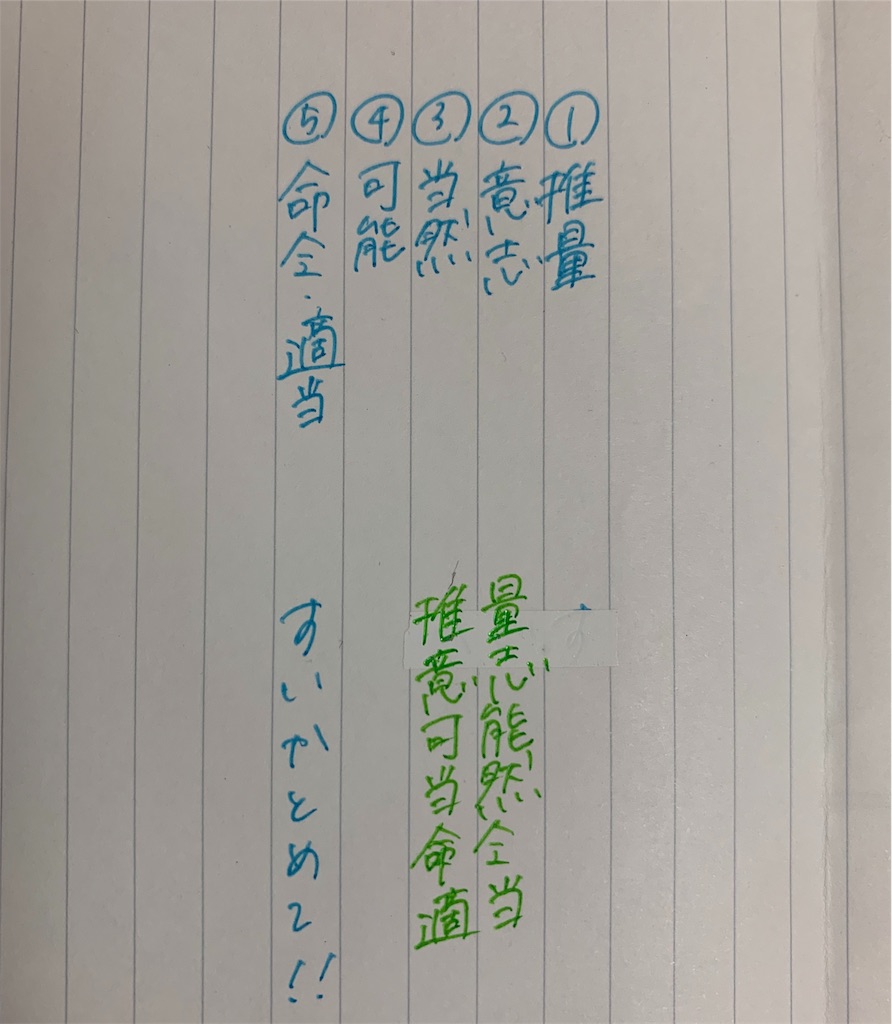 ①推量
②意志
③当然
④可能
⑤命令・適当
す
量志能然令当
推意可当命適
すいかとめて!!